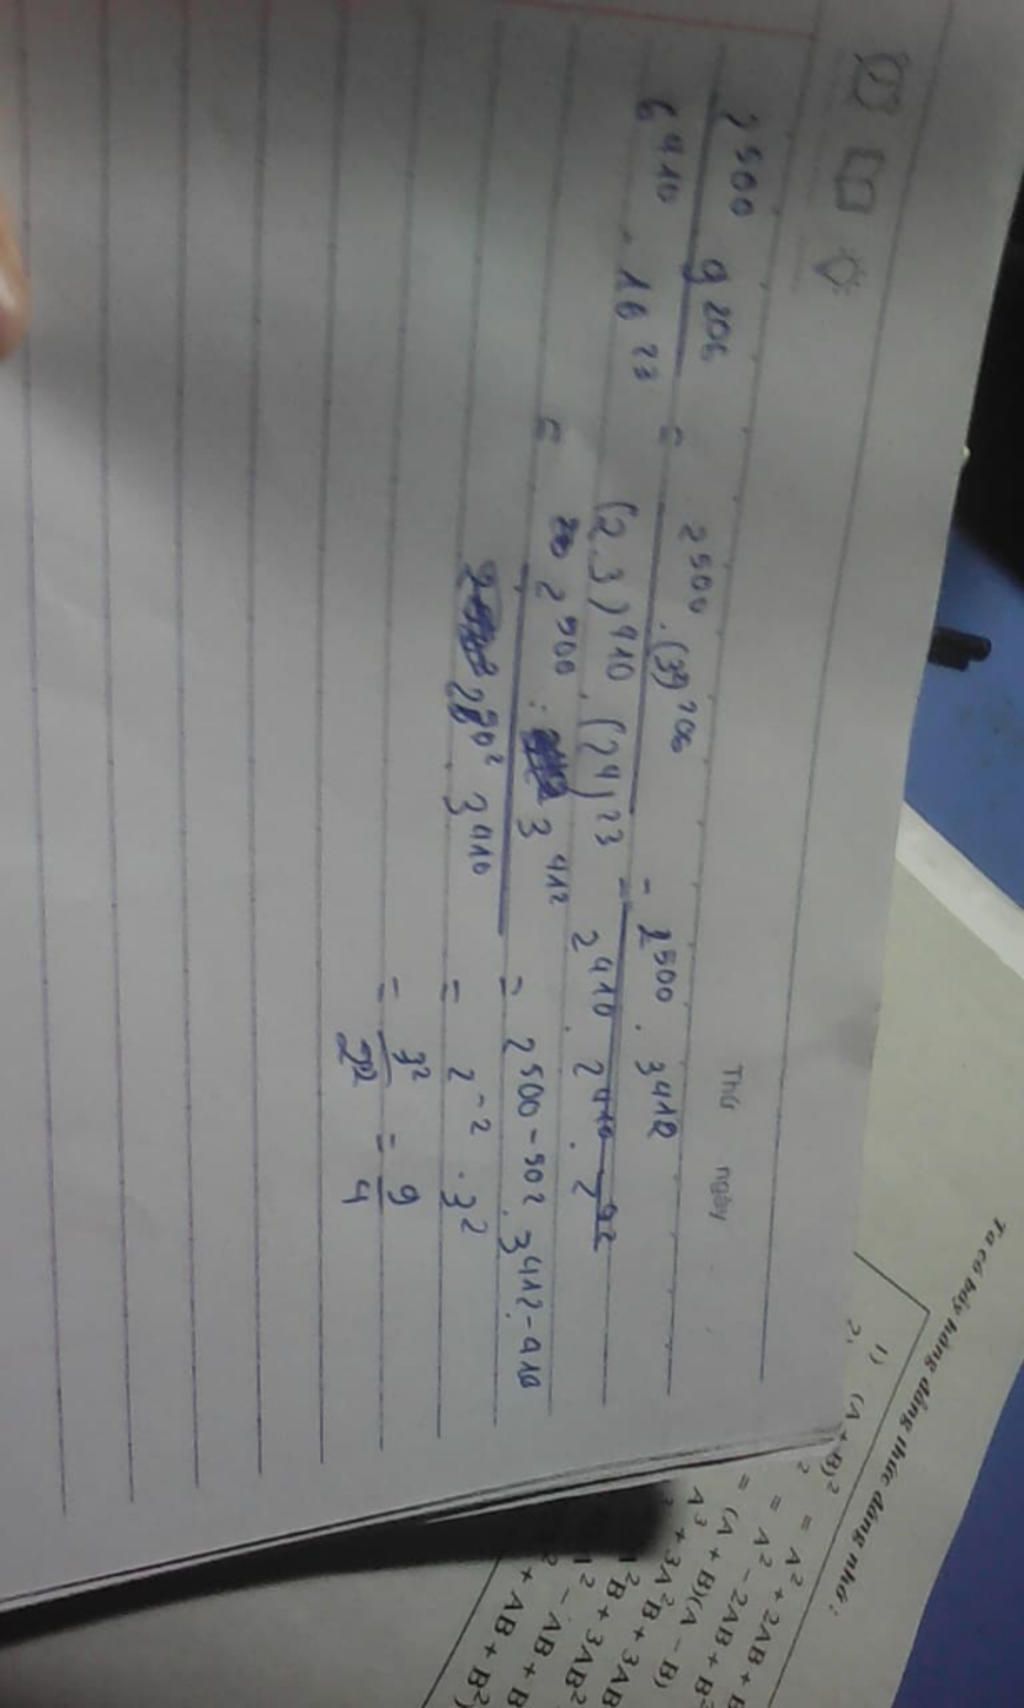 Thứ ngày
2^500 . 9^206 / 6^410 . 16^23 = 2^500 . (3^2)^206 / (2.3)^410 . (2^4)^23 = 2^500 . 3^412 / 2^410 . 2^410 . 2^92
= 2^500 . 3^412 / 2^502 . 3^410 = 2^500-502 . 3^412-410
= 2^-2 . 3^2
= 3^2 / 2^2 = 9/4
Ta có bảy hằng đẳng thức đáng nhớ:
1) (A + B)^2 = A^2 + 2AB + B
2) = A^2 - 2AB + B^2
= (A + B)(A - B)
A^3 + 3A^2B + 3AB
^2B + 3AB^2
^2 - AB + B
+ AB + B^2)